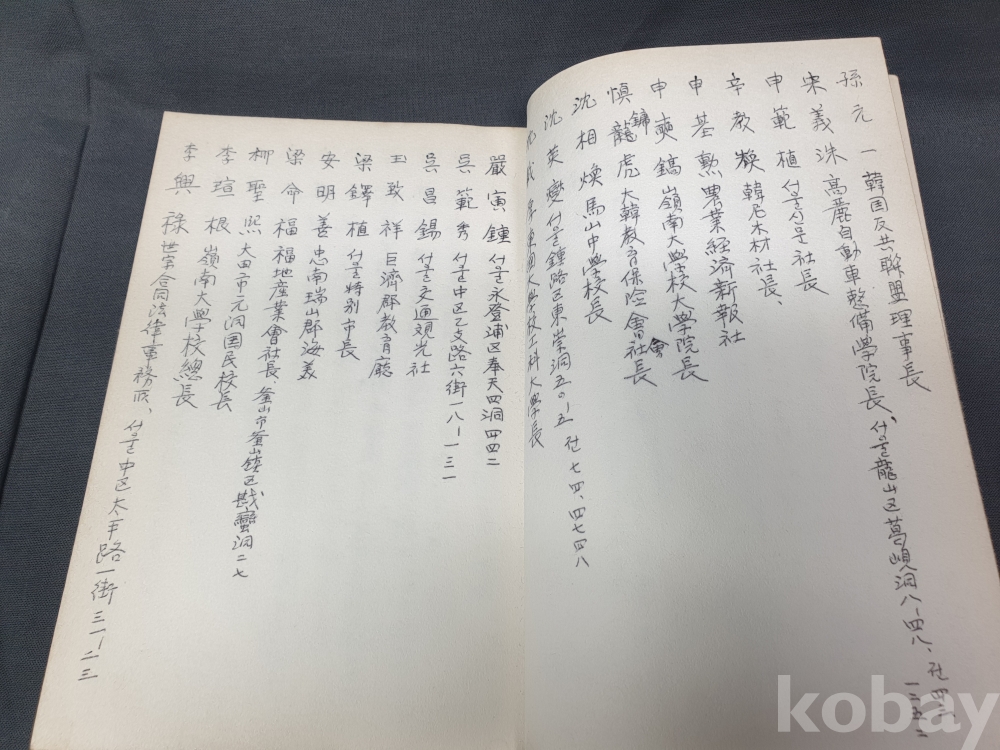 孫元一 韓国反共聯盟理事長
宋義洙 高麗自動車整備學院長、서울龍山区葛峴洞八-四八、전
申範植 서울신문社長
辛教 韓尼木材社長、
申基勲 農業経済新報社
申奭鎬 嶺南大學校大學院長
慎鏞虎 大韓教育保険會社長
沈相煥 馬山中學校長
沈英燮 서울鍾路区東崇洞五〇-五 전 七四、四七四八
東国大學校工科大學長
嚴寅鍾 서울永登浦区奉天四洞四四二
呉範秀 서울中区乙支路六街一八-一三一
呉昌錫 서울交通観光社
玉致祥 巨濟郡教育廳
梁鐸植 서울特别市長
安明善 忠南瑞山郡海美
梁命福 福地産業會社長、釜山市釜山鎮区戡蠻洞二七
柳聖熙 大田市元洞国民校長
李瑄根 嶺南大學校總長
李興禄 世宗合同法律事務所、서울中区太平路一街三一-二三
kobay